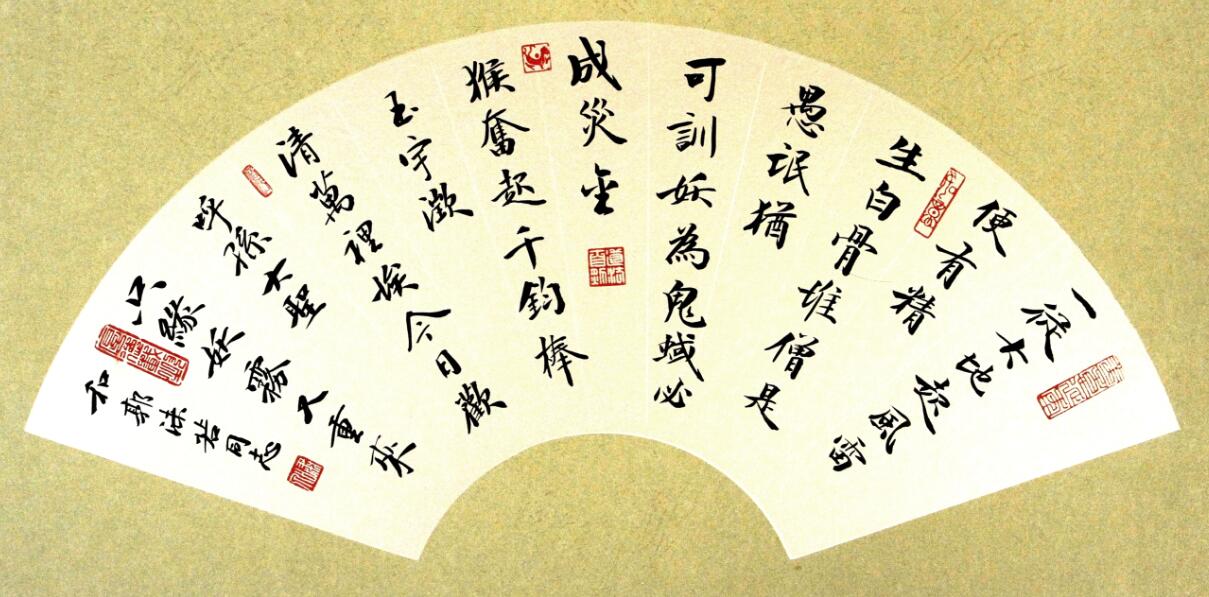 一從大地起風雷
便有精
生白骨堆僧是
愚氓猶
可訓妖為鬼蜮必
成災金
猴奮起千鈞棒
玉宇澂
清萬裡埃今日歡
呼孫大聖
只緣妖霧又重來
和郭沫若同志